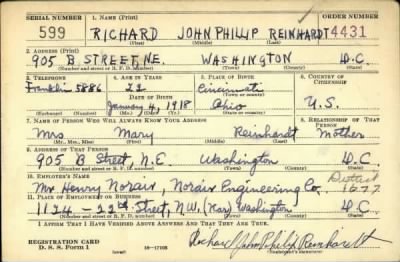 SERIAL NUMBER 1. NAME (Print) ORDER NUMBER
599 RICHARD JOHN PHILLIP REINHARDT 4431
(First) (Middle) (Last)
2. ADDRESS (Print)
905 B STREET NE. WASHINGTON D.C.
(Number and street or R. F. D. number) (Town) (County) (State)
3. TELEPHONE 4. AGE IN YEARS 5. PLACE OF BIRTH 6. COUNTRY OF CITIZENSHIP
Franklin 5886 22 Cincinnati
DATE OF BIRTH (Town or county)
January 4, 1918 Ohio U.S.
(Exchange) (Number) (Mo.) (Day) (Yr.) (State or country)
7. NAME OF PERSON WHO WILL ALWAYS KNOW YOUR ADDRESS 8. RELATIONSHIP OF THAT PERSON
Mrs Mary Reinhardt Mother
(Mr., Mrs., Miss) (First) (Middle) (Last)
9. ADDRESS OF THAT PERSON
905 B Street, N.E. Washington D.C.
(Number and street or R. F. D. number) (Town) (County) (State)
10. EMPLOYER'S NAME District
Mr Henry Norair, Norair Engineering Co. 1677
11. PLACE OF EMPLOYMENT OR BUSINESS
1124 – 22nd Street, N.W, Washington D.C.
(Number and street or R. F. D. number) (Town) (County) (State)
I AFFIRM THAT I HAVE VERIFIED ABOVE ANSWERS AND THAT THEY ARE TRUE.
REGISTRATION CARD
D. S. S. Form 1 16—17105 Richard John Philip Reinhardt
(Registrant's signature)